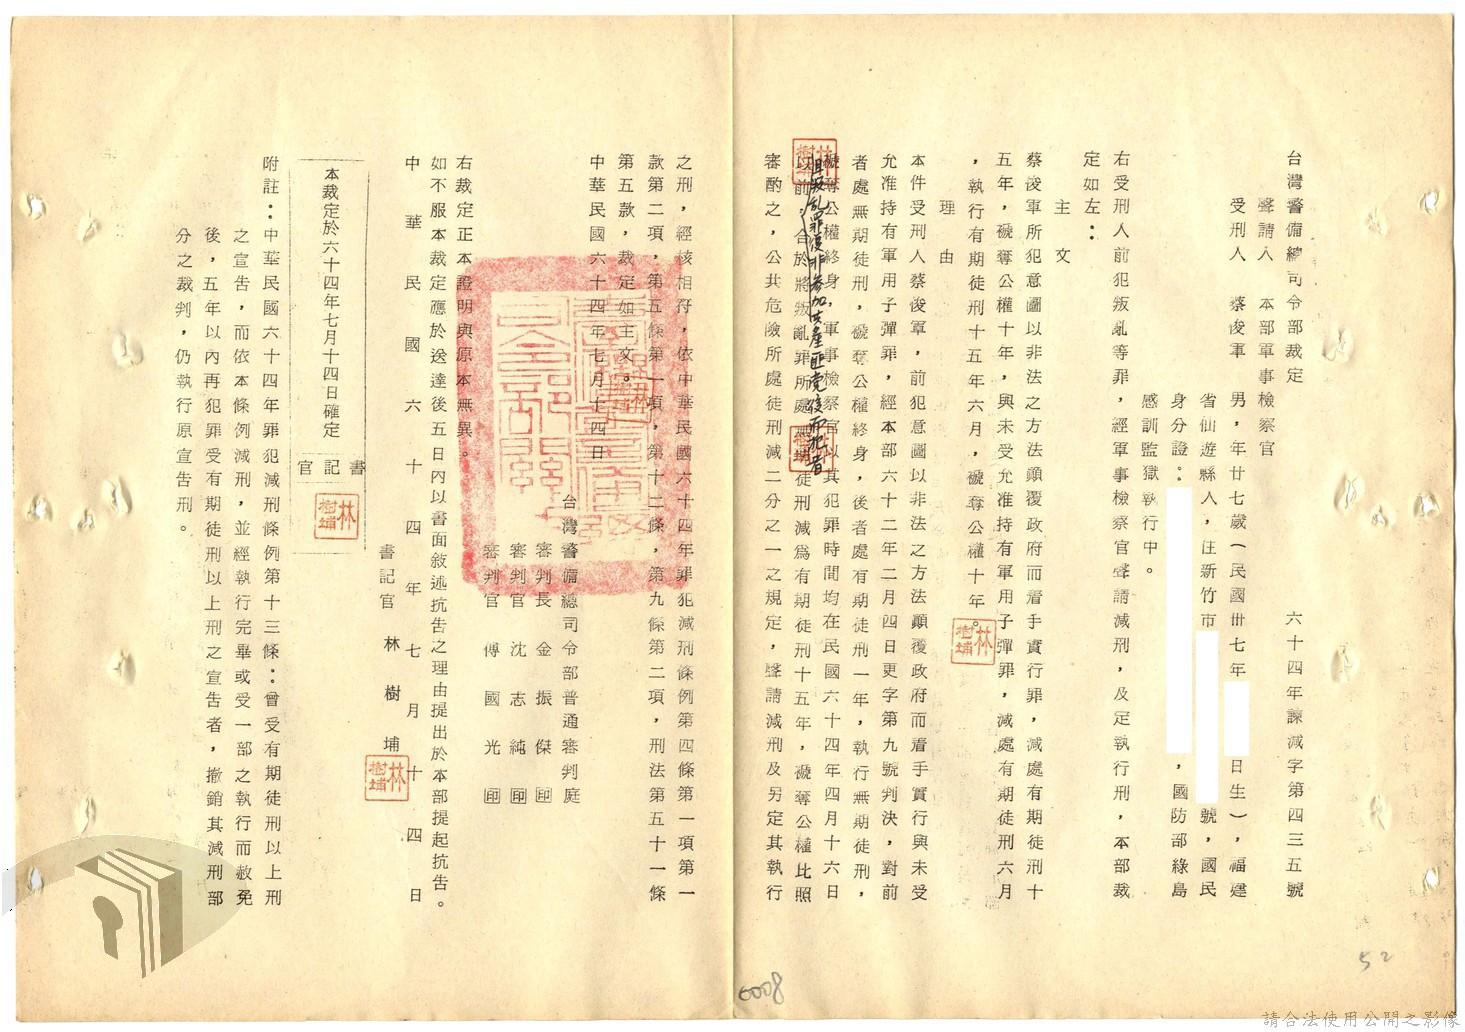 台灣警備總司令部裁定　六十四年諫減字第四三五號
聲請人　本部軍事檢察官
受刑人　蔡俊軍　男，年廿七歲（民國卅七年　日生），福建
省仙遊縣人，住新竹市　號，國民
身分證：　，國防部綠島
感訓監獄執行中。
右受刑人前犯叛亂等罪，經軍事檢察官聲請減刑，及定執行刑，本部裁
定如左：
主文
蔡俊軍所犯意圖以非法之方法顛覆政府而着手實行罪，減處有期徒刑十
五年，褫奪公權十年，與未受允准持有軍用子彈罪，減處有期徒刑六月
，執行有期徒刑十五年六月，褫奪公權十年。
理由
本件受刑人蔡俊軍，前犯意圖以非法之方法顛覆政府而着手實行與未受
允准持有軍用子彈罪，經本部六十二年二月四日更字第九號判決，對前
者處無期徒刑，褫奪公權終身，後者處有期徒刑一年，執行無期徒刑，
褫奪公權終身，軍事檢察官以其犯罪時間均在民國六十四年四月十六日
且叛亂罪復非參加共產匪党後而犯者
以前，合於將叛亂罪所處無期徒刑減為有期徒刑十五年，褫奪公權比照
審酌之，公共危險所處徒刑減二分之一之規定，聲請減刑及另定其執行
之刑，經核相符，依中華民國六十四年罪犯減刑條例第四條第一項第一
款第二項，第五條第一項，第十二條，第九條第二項，刑法第五十一條
第五款，裁定如主文。
中華民國六十四年七月十四日
台灣警備總司令部普通審判庭
審判長　金振傑　印
審判官　沈志純　印
審判官　傅國光　印
右裁定正本證明與原本無異。
如不服本裁定應於送達後五日內以書面敘述抗告之理由提出於本部提起抗告。
中華民國六十四年七月十四日
書記官　林樹埔
林樹埔
本裁定於六十四年七月十四日確定
書記官
林樹埔
附註：中華民國六十四年罪犯減刑條例第十三條：曾受有期徒刑以上刑
之宣告，而依本條例減刑，並經執行完畢或受一部之執行而赦免
後，五年以內再犯罪受有期徒刑以上刑之宣告者，撤銷其減刑部
分之裁判，仍執行原宣告刑。
52
0008
請合法使用公開之影像